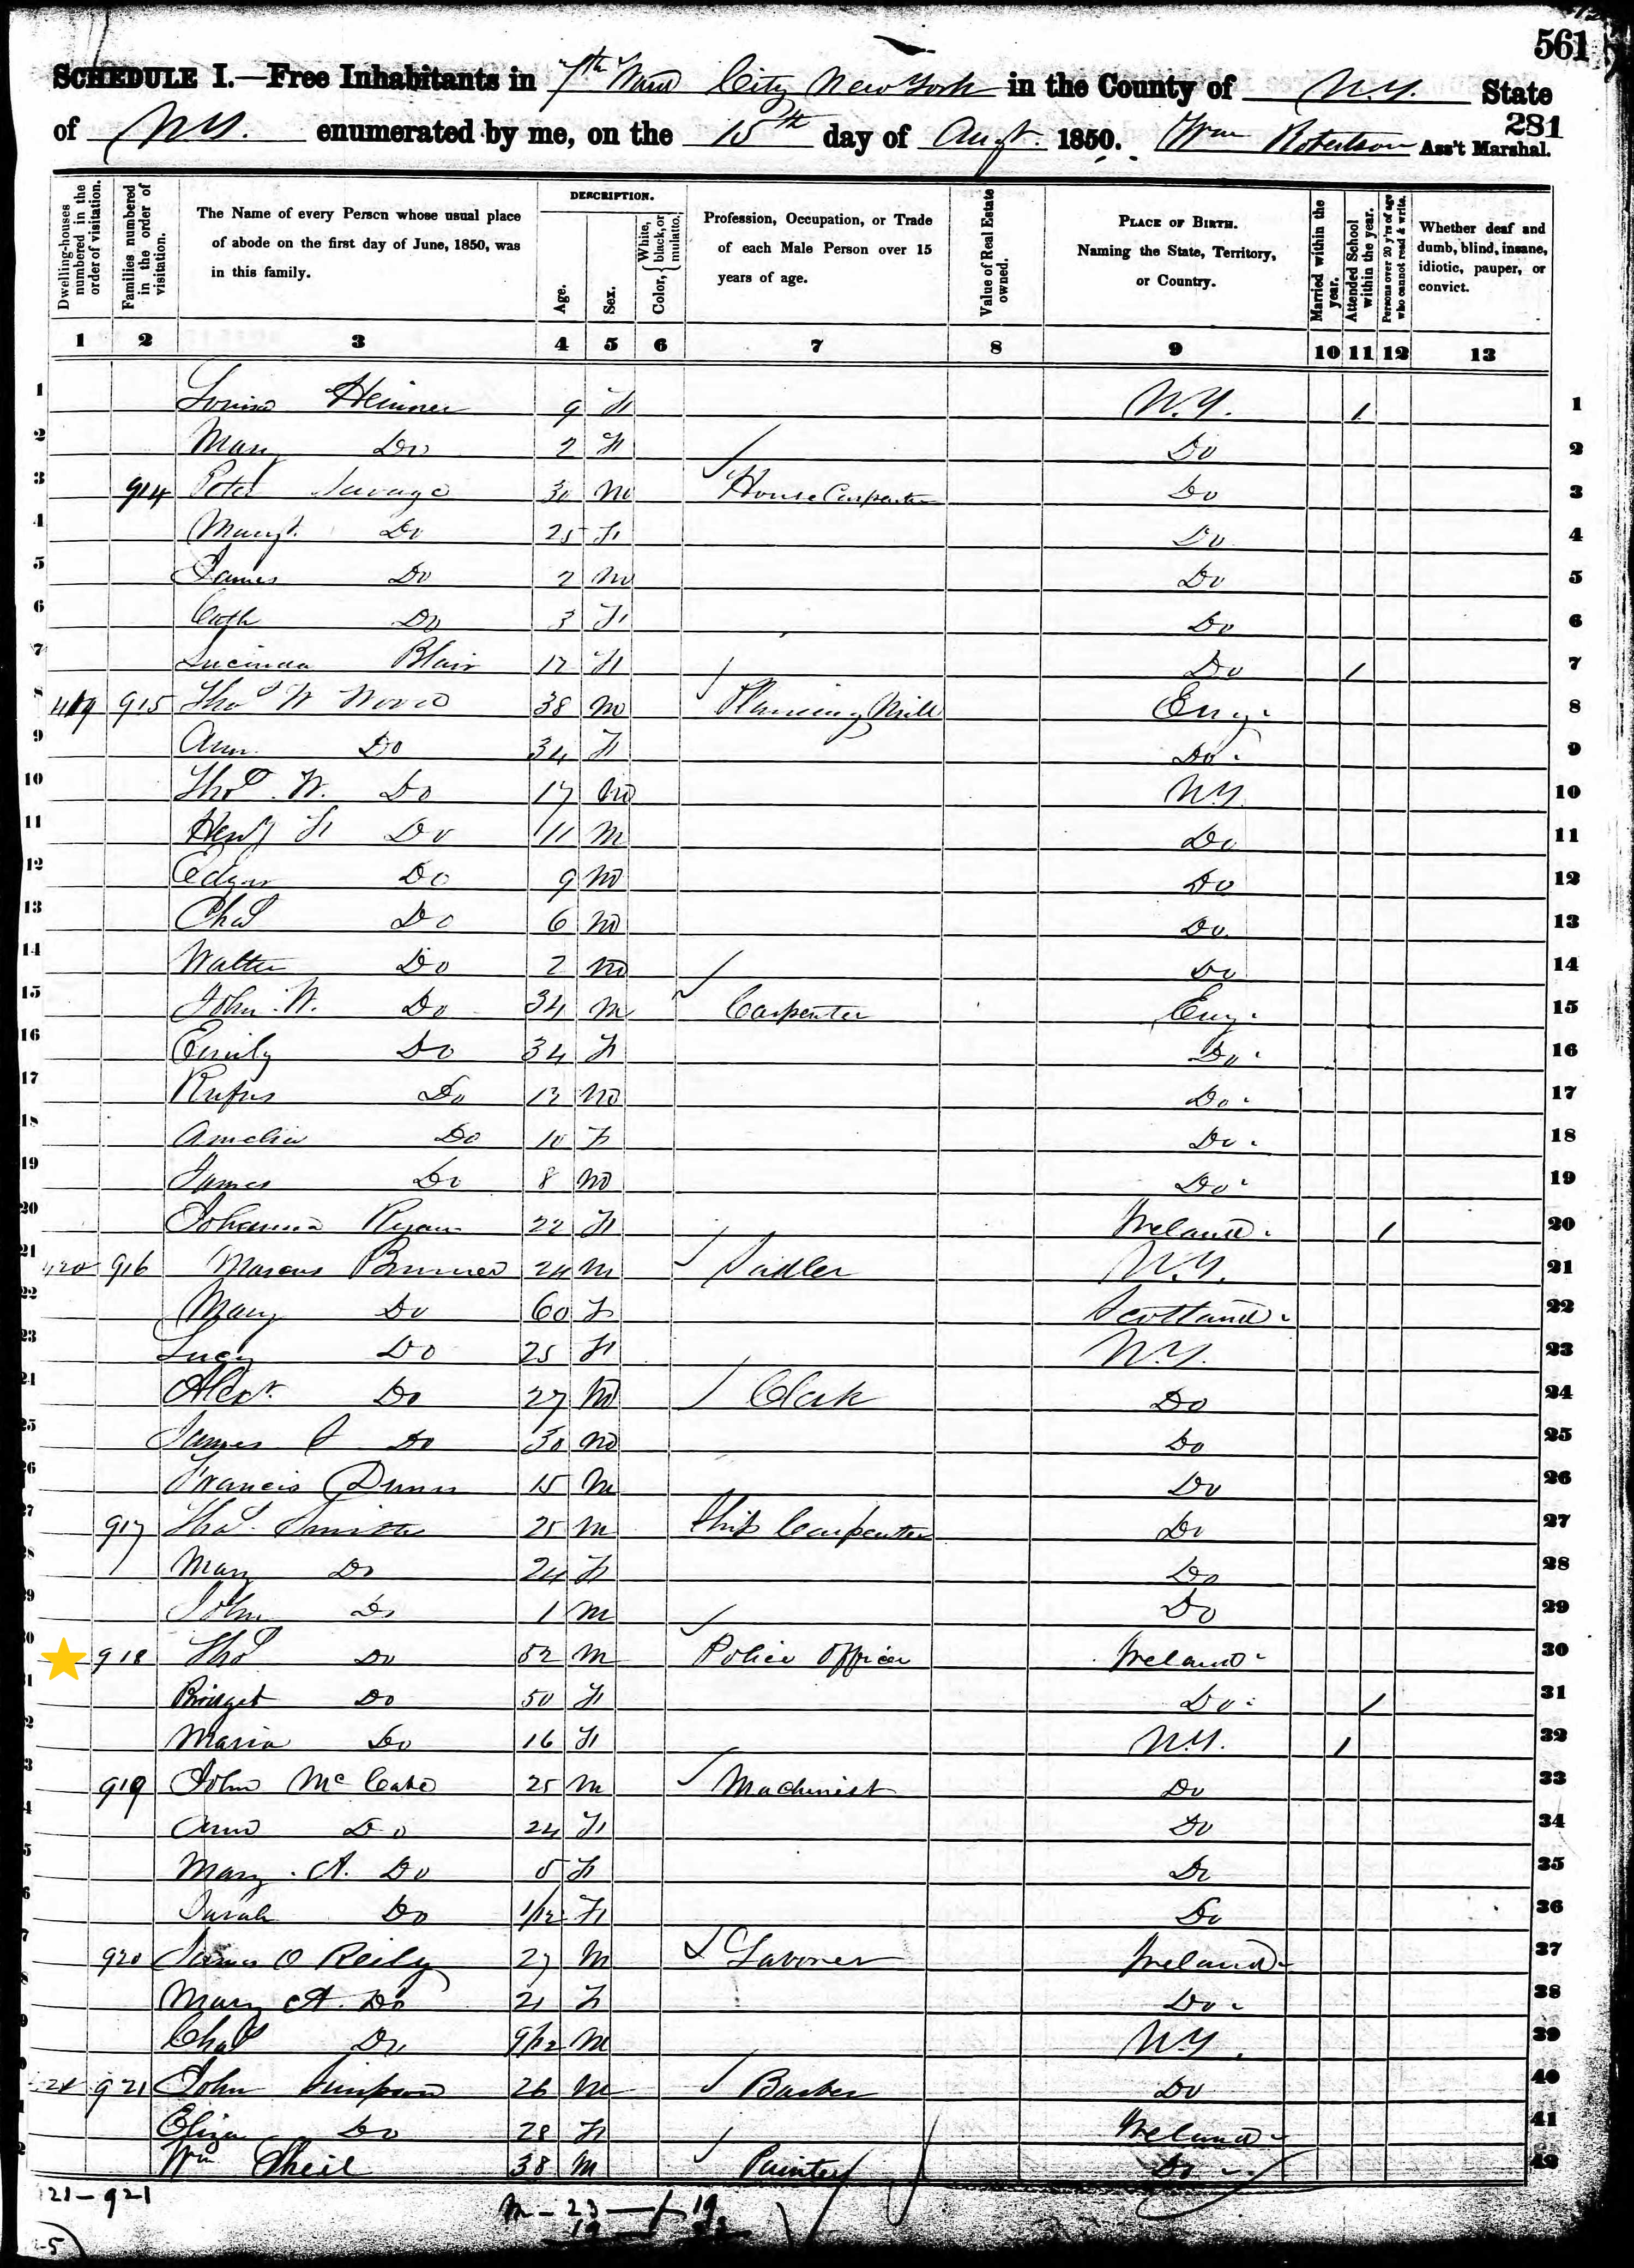 561
SCHEDULE I.—Free Inhabitants in 7th Ward City New York in the County of N.Y. State
281
of N.Y. enumerated by me, on the 15th day of Augt. 1850. Wm Robertson Ass't Marshal.
Dwelling-houses numbered in the order of visitation.
Families numbered in the order of visitation.
The Name of every Person whose usual place of abode on the first day of June, 1850, was in this family.
DESCRIPTION.
Age.
Sex.
Color, { White, black, or mulatto.
Profession, Occupation, or Trade of each Male Person over 15 years of age.
Value of Real Estate owned.
PLACE OF BIRTH. Naming the State, Territory, or Country.
Married within the year.
Attended School within the year.
Persons over 20 y'rs of age who cannot read & write.
Whether deaf and dumb, blind, insane, idiotic, pauper, or convict.
1 2 3 4 5 6 7 8 9 10 11 12 13
1 Louisa 9 F N.Y. / 1
2 Mary Do 2 F Do 2
3 914 Peter Savage 30 M House Carpenter Do 3
4 Margt. Do 25 F Do 4
5 James Do 2 M Do 5
6 Cath Do 3 F Do 6
7 Lucinda Blair 12 F Do / 7
8 419 915 Thos W Wood 38 M Planing Mill Eng. 8
9 Ann Do 34 F Do. 9
10 Thos. W. Do 17 M N.Y. 10
11 Heny F Do 11 M Do 11
12 Edgar Do 9 M Do 12
13 Chas Do 6 M Do. 13
14 Walter Do 2 M Do 14
15 John W. Do 34 M Carpenter Eng. 15
16 Emily Do 34 F Do. 16
17 Rufus Do 13 M Do. 17
18 Amelia Do 10 F Do. 18
19 James Do 8 M Do. 19
20 Johanna Ryan 22 F Ireland. / 20
21 420 916 Marcus 24 M Sadler N.Y. 21
22 Mary Do 60 F Scotland. 22
23 Lucy Do 25 F N.Y. 23
24 Alexr. Do 27 M Clerk Do 24
25 James Do 30 M Do 25
26 Francis Dunn 15 M Do 26
27 917 Thos. Smith 25 M Ship Carpenter Do 27
28 Mary Do 24 F Do 28
29 John Do 1 M Do 29
30 918 Thos Do 52 M Police Officer Ireland 30
31 Bridget Do 50 F Do. / 31
32 Maria Do 16 F N.Y. / 32
33 919 John McCabe 25 M Machinist Do 33
34 Ann Do 24 F Do 34
35 Mary. A. Do 5 F Do 35
36 Sarah Do 1/12 F Do 36
37 920 James O Reily 27 M Laborer Ireland 37
38 Mary A. Do 21 F Do. 38
39 Chas Do 9/12 M N.Y. 39
40 921 John Simpson 26 M Barber Do 40
41 Eliza Do 28 F Ireland 41
42 Wm Sheil 38 M Painter Do 42
21-921
M-23-F 19